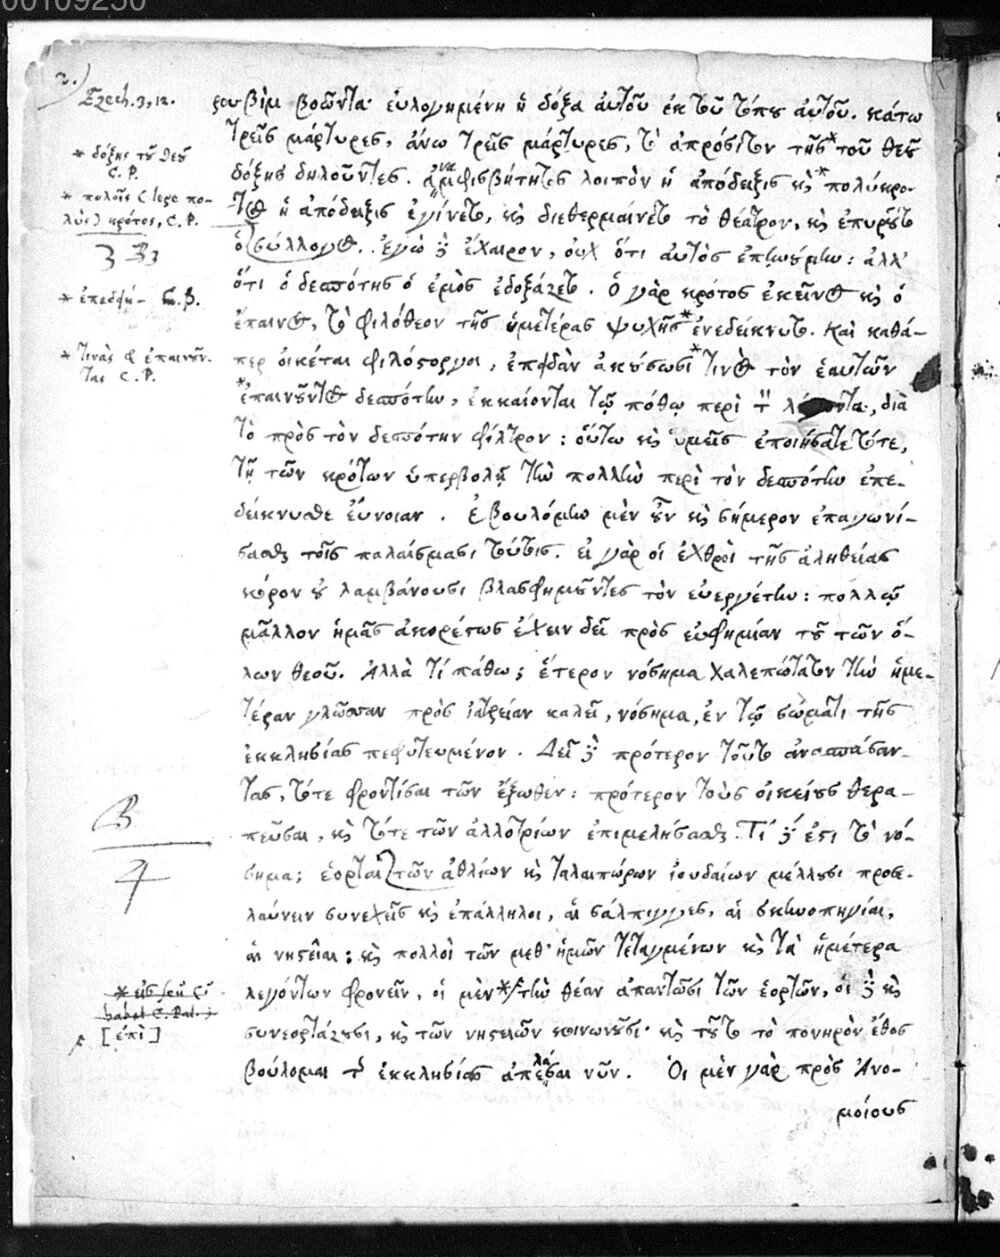 00109230
2.)
Ezech. 3, 12.
ρουβὶμ βοῶντα· εὐλογημένη ἡ δόξα αὐτοῦ ἐκ τοῦ τόπου αὐτοῦ. κάτω
τρεῖς μάρτυρες, ἄνω τρεῖς μάρτυρες, τὸ ἀπρόσιτον τῆς * τοῦ θεοῦ
* δόξης τοῦ θεοῦ
C. P.
δόξης δηλοῦντες. ἀναμφισβήτητος λοιπὸν ἡ ἀπόδειξις καὶ * πολύκρο-
* πολὺς (lege πο-
λὺς) κρότος, C. P.
τος ἡ ἀπόδειξις ἐγίνετο, καὶ διεθερμαίνετο τὸ θέατρον, καὶ ἐπυροῦτο
ὁ σύλλογος. ἐγὼ δὲ ἔχαιρον, οὐχ ὅτι αὐτὸς ἐπῃνούμην: ἀλλ'
ὅτι ὁ δεσπότης ὁ ἐμὸς ἐδοξάζετο. Ὁ γὰρ κρότος ἐκεῖνος καὶ ὁ
ἔπαινος, τὸ φιλόθεον τῆς ὑμετέρας ψυχῆς * ἐνεδείκνυτο. Καὶ καθά-
περ οἰκέται φιλόστοργοι, ἐπειδὰν ἀκούσωσι * τινὸς τὸν ἑαυτῶν
* τινὰς &amp; ἐπαινοῦν-
τας C. P.
* ἐπαινοῦντος δεσπότην, ἐκκαίονται τῷ πόθῳ περὶ τὸν λέγοντα, διὰ
τὸ πρὸς τὸν δεσπότην φίλτρον: οὕτω καὶ ὑμεῖς ἐποιήσατε τότε,
τῇ τῶν κρότων ὑπερβολῇ τὴν πολλὴν περὶ τὸν δεσπότην ἐπε-
δείκνυσθε εὔνοιαν. Ἐβουλόμην μὲν οὖν καὶ σήμερον ἐπαγωνί-
σασθαι τοῖς παλαίσμασι τούτοις. εἰ γὰρ οἱ ἐχθροὶ τῆς ἀληθείας
κόρον οὐ λαμβάνουσι βλασφημοῦντες τὸν εὐεργέτην: πολλῷ
μᾶλλον ἡμᾶς ἀκορέστως ἔχειν δεῖ πρὸς εὐφημίαν τοῦ τῶν ὅ-
λων θεοῦ. Ἀλλὰ τί πάθω; ἕτερον νόσημα χαλεπώτατον τὴν ἡμε-
τέραν γλῶσσαν πρὸς ἰατρείαν καλεῖ, νόσημα, ἐν τῷ σώματι τῆς
ἐκκλησίας πεφυτευμένον. Δεῖ δὲ πρότερον τοῦτο ἀνασπάσαν-
τας, τότε φροντίσαι τῶν ἔξωθεν: πρότερον τοὺς οἰκείους θερα-
πεῦσαι, καὶ τότε τῶν ἀλλοτρίων ἐπιμελήσασθαι. Τί δέ ἐστι τὸ νό-
B
4
σημα; ἑορταὶ τῶν ἀθλίων καὶ ταλαιπώρων ἰουδαίων μέλλουσι προσε-
λαύνειν συνεχεῖς καὶ ἐπάλληλοι, αἱ σάλπιγγες, αἱ σκηνοπηγίαι,
αἱ νηστεῖαι: καὶ πολλοὶ τῶν μεθ' ἡμῶν τεταγμένων καὶ τὰ ἡμέτερα
λεγόντων φρονεῖν, οἱ μὲν * τὴν θέαν ἀπαντῶσι τῶν ἑορτῶν, οἱ δὲ καὶ
[ἐπὶ]
συνεορτάζουσι, καὶ τῶν νηστειῶν κοινωνοῦσι· καὶ τοῦτο τὸ πονηρὸν ἔθος
βούλομαι τῆς ἐκκλησίας ἀπελάσαι νῦν. Οἱ μὲν γὰρ πρὸς Ἀνο-
μοίους